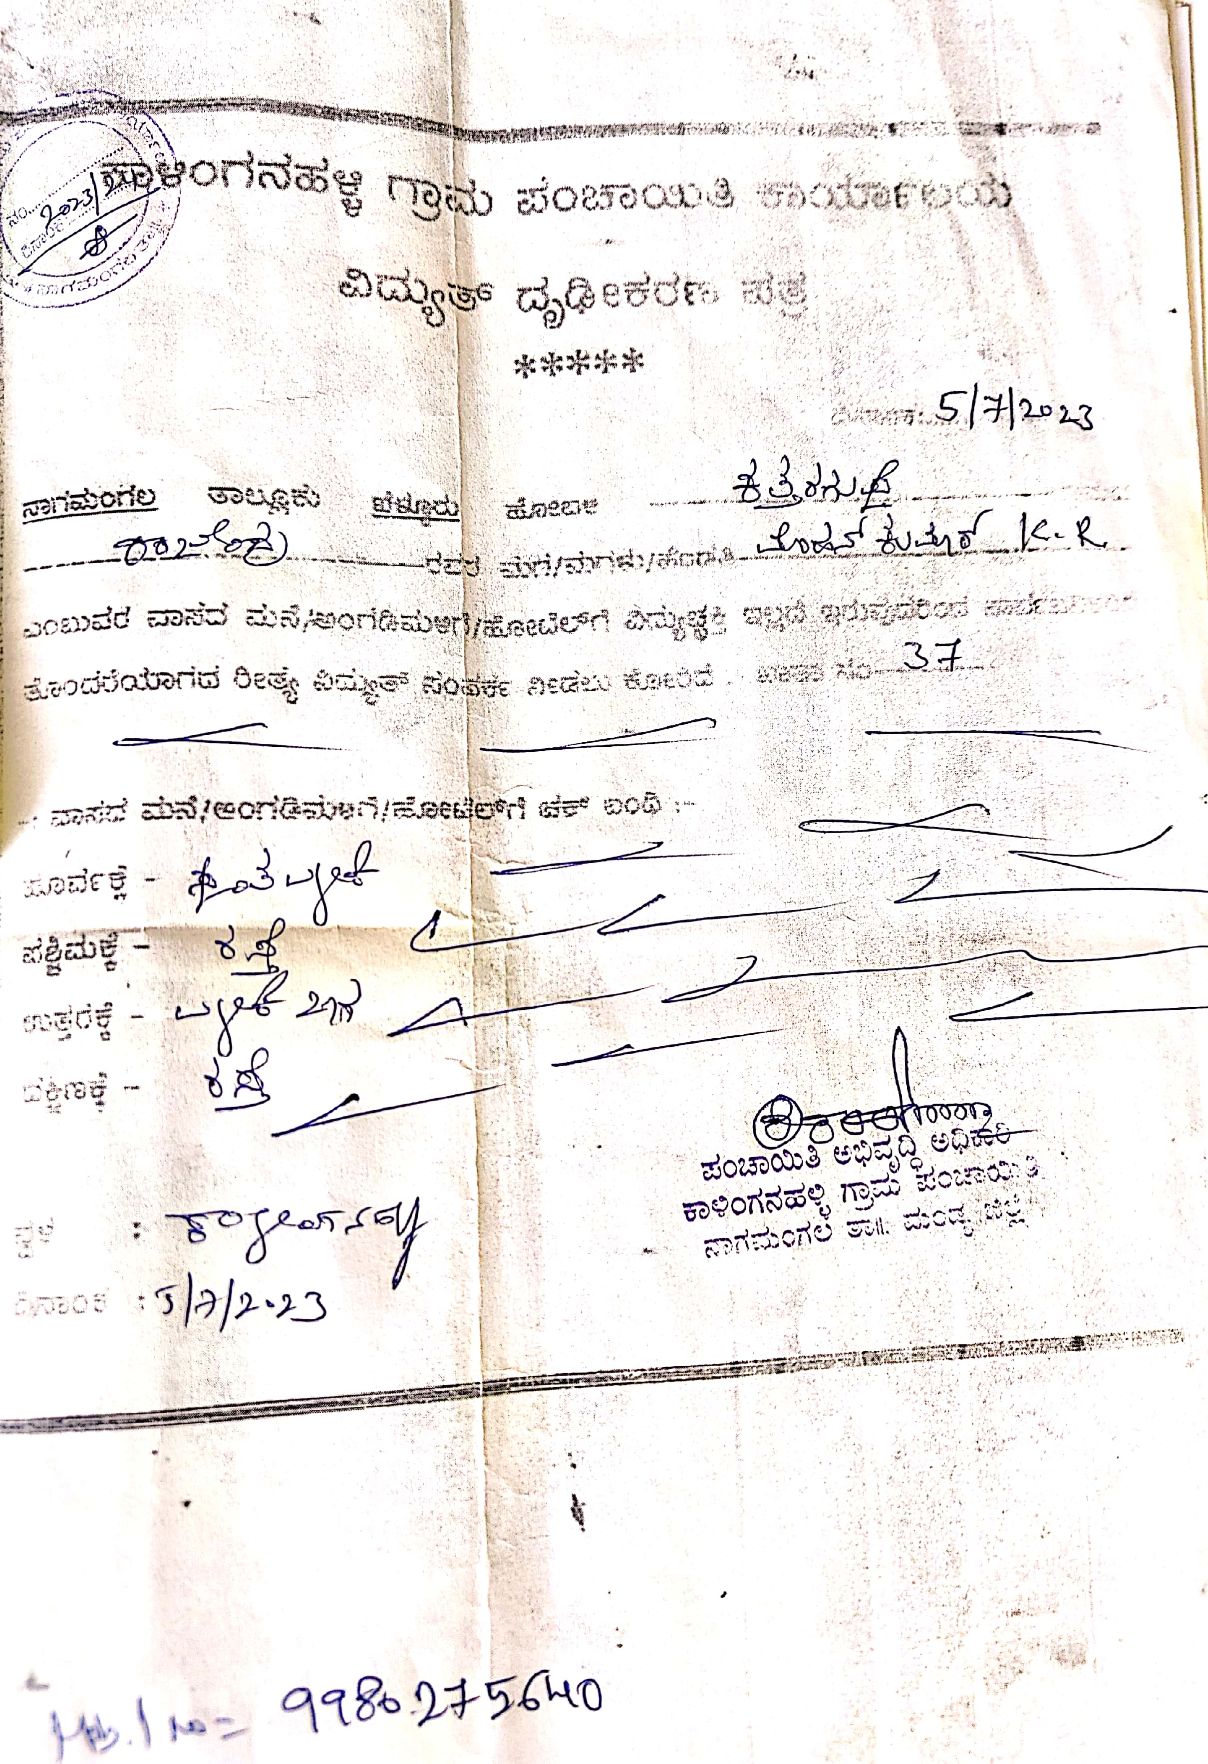 ನಂ. 2023/24
ದಿನಾಂಕ
ನಾಗಮಂಗಲ ತಾ||
ಕಾಳಿಂಗನಹಳ್ಳಿ ಗ್ರಾಮ ಪಂಚಾಯಿತಿ ಕಾರ್ಯಾಲಯ
ವಿದ್ಯುತ್ ದೃಢೀಕರಣ ಪತ್ರ
*****
ದಿನಾಂಕ: 5/7/2023
ನಾಗಮಂಗಲ ತಾಲ್ಲೂಕು ಬೆಳ್ಳೂರು ಹೋಬಳಿ
ರವರ ಮಗ/ಮಗಳು/ಹೆಂಡತಿ ಮೋಹನ್ ಕುಮಾರ್ K.R
ಎಂಬುವರ ವಾಸದ ಮನೆ/ಅಂಗಡಿಮಳಿಗೆ/ಹೋಟೆಲ್‌ಗೆ ವಿದ್ಯುಚ್ಛಕ್ತಿ ಇಲ್ಲದೆ ಇರುವುದರಿಂದ ಸಾರ್ವಜನಿಕರಿಗೆ
ತೊಂದರೆಯಾಗದ ರೀತ್ಯ ವಿದ್ಯುತ್ ಸಂಪರ್ಕ ನೀಡಲು ಕೋರಿದೆ. ಖಾತಾ ಸಂ 37
-: ವಾಸದ ಮನೆ/ಅಂಗಡಿಮಳಿಗೆ/ಹೋಟೆಲ್‌ಗೆ ಚಕ್ ಬಂಧಿ :-
ಪೂರ್ವಕ್ಕೆ -
ಪಶ್ಚಿಮಕ್ಕೆ - ರಸ್ತೆ
ಉತ್ತರಕ್ಕೆ -
ದಕ್ಷಿಣಕ್ಕೆ - ರಸ್ತೆ
ಪಂಚಾಯಿತಿ ಅಭಿವೃದ್ಧಿ ಅಧಿಕಾರಿ
ಕಾಳಿಂಗನಹಳ್ಳಿ ಗ್ರಾಮ ಪಂಚಾಯಿತಿ
ನಾಗಮಂಗಲ ತಾ||. ಮಂಡ್ಯ ಜಿಲ್ಲೆ
ಸ್ಥಳ : ಕಾಳಿಂಗನಹಳ್ಳಿ
ದಿನಾಂಕ : 5/7/2023
Mb. / no = 9980275640